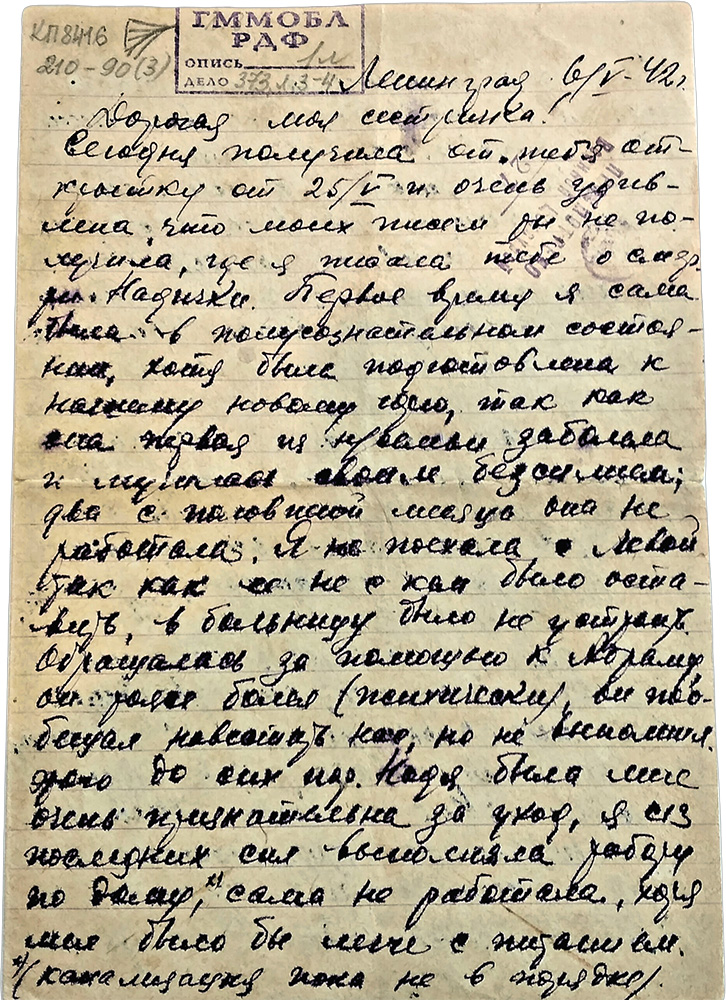 КП8416
210-90(3)
ГММОБЛ
РДФ
ОПИСЬ 1л
ДЕЛО 373 л.3-4
Ленинград 6/V-42г.
Дорогая моя сестричка!
Сегодня получила от тебя от-
крытку от 25/V и очень удив-
лена, что моих писем ты не по-
лучила, где я писала тебе о смер-
ти Надички. Первое время я сама
была в полусознательном состоя-
нии, хотя была подготовлена к
новому горю, так как
она первая из заболела
и мучилась своим безсилием;
два с половиной месяца она не
работала. Я не поехала с Левой
так как ее не с кем было оста-
вить, в больницу было не устроить.
Обращалась за помощью к Абраму,
он тоже болел (психически), он поо-
бещал навестить нас, но не выполнил
этого до сих пор. Надя была мне
очень признательна за уход, я из
последних сил выполняла работу
по дому,х) сама не работала, хотя
мне было бы легче с питанием.
х)(канализация пока не в порядке).